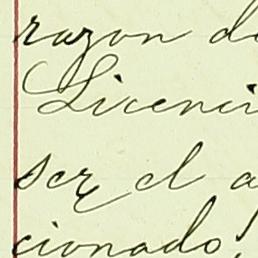 razon d
Licenci
ser el a
cionado,